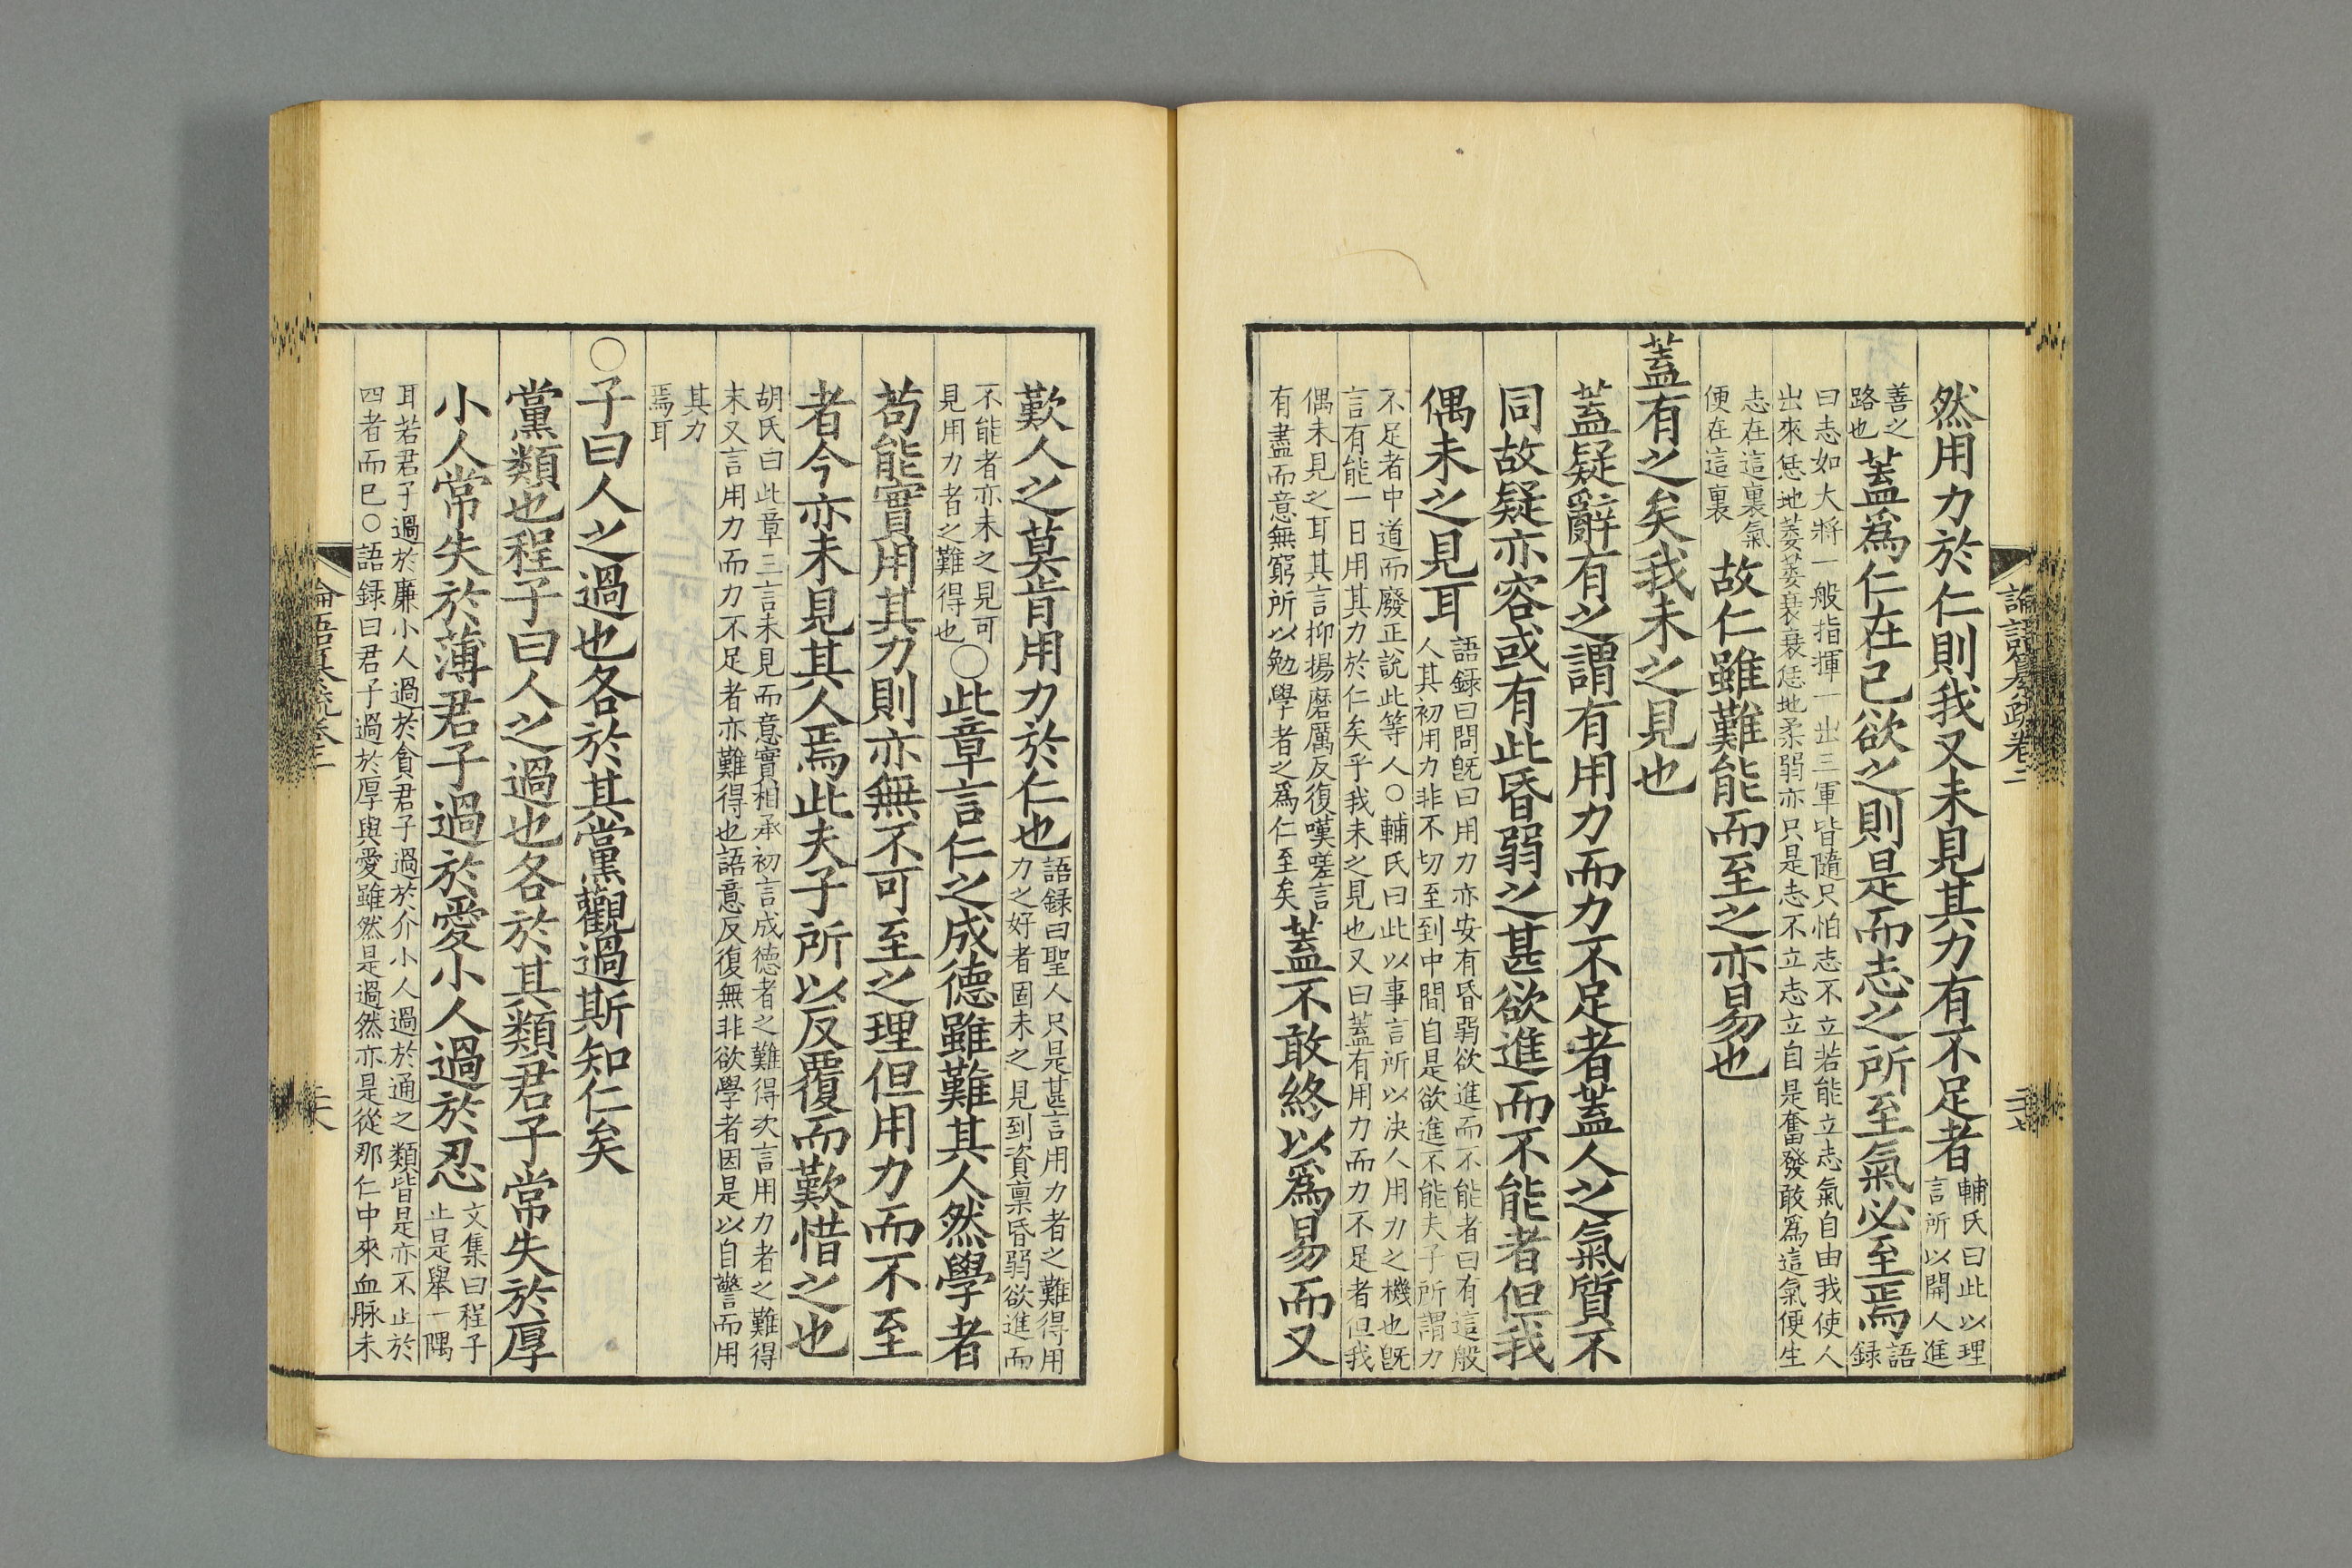 論語纂疏卷二
然用力於仁則我又未見其力有不足者輔氏曰此以理
言所以開人進
善之
路也蓋爲仁在己欲之則是而志之所至氣必至焉語
録
曰志如大將一般指揮一出三軍皆隨只怕志不立若能立志氣自由我使人
出來恁地萎萎衰衰恁地柔弱亦只是志不立志立自是奮發敢爲這氣便生
志在這裏氣
便在這裏故仁雖難能而至之亦易也
蓋有之矣我未之見也
蓋疑辭有之謂有用力而力不足者蓋人之氣質不
同故疑亦容或有此昏弱之甚欲進而不能者但我
偶未之見耳語録曰問旣曰用力亦安有昏弱欲進而不能者曰有這般
人其初用力非不切至到中間自是欲進不能夫子所謂力
不足者中道而廢正說此等人○輔氏曰此以事言所以決人用力之機也旣
言有能一日用其力於仁矣乎我未之見也又曰蓋有用力而力不足者但我
偶未見之耳其言抑揚磨厲反復嘆嗟言
有盡而意無窮所以勉學者之爲仁至矣蓋不敢終以爲易而又
歎人之莫肯用力於仁也語録曰聖人只是甚言用力者之難得用
力之好者固未之見到資稟昏弱欲進而
不能者亦未之見可
見用力者之難得也○此章言仁之成德雖難其人然學者
苟能實用其力則亦無不可至之理但用力而不至
者今亦未見其人焉此夫子所以反覆而歎惜之也
胡氏曰此章三言未見而意實相承初言成德者之難得次言用力者之難得
末又言用力而力不足者亦難得也語意反復無非欲學者因是以自警而用
其力
焉耳
○子曰人之過也各於其黨觀過斯知仁矣
黨類也程子曰人之過也各於其類君子常失於厚
小人常失於薄君子過於愛小人過於忍文集曰程子
止是舉一隅
耳若君子過於廉小人過於貪君子過於介小人過於通之類皆是亦不止於
四者而已○語録曰君子過於厚與愛雖然是過然亦是從那仁中來血脉未